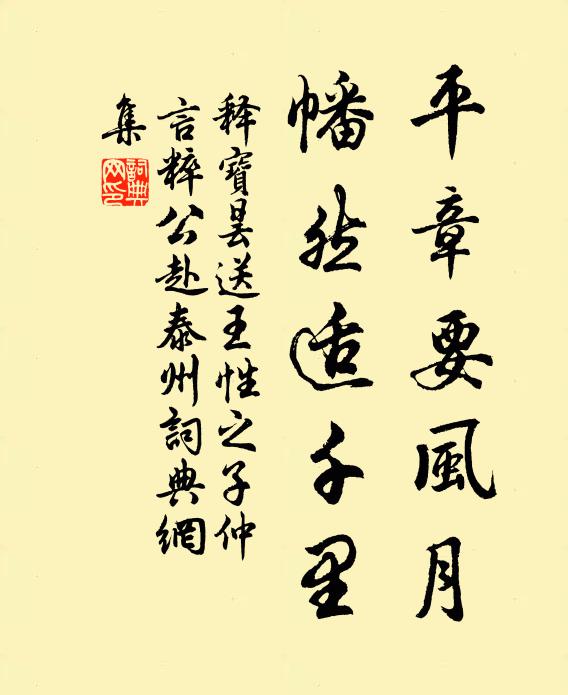 平章要風月
幡然适千里
释寶曇送王性之子仲
言粹公赴泰州詞典網
集
詞典網印